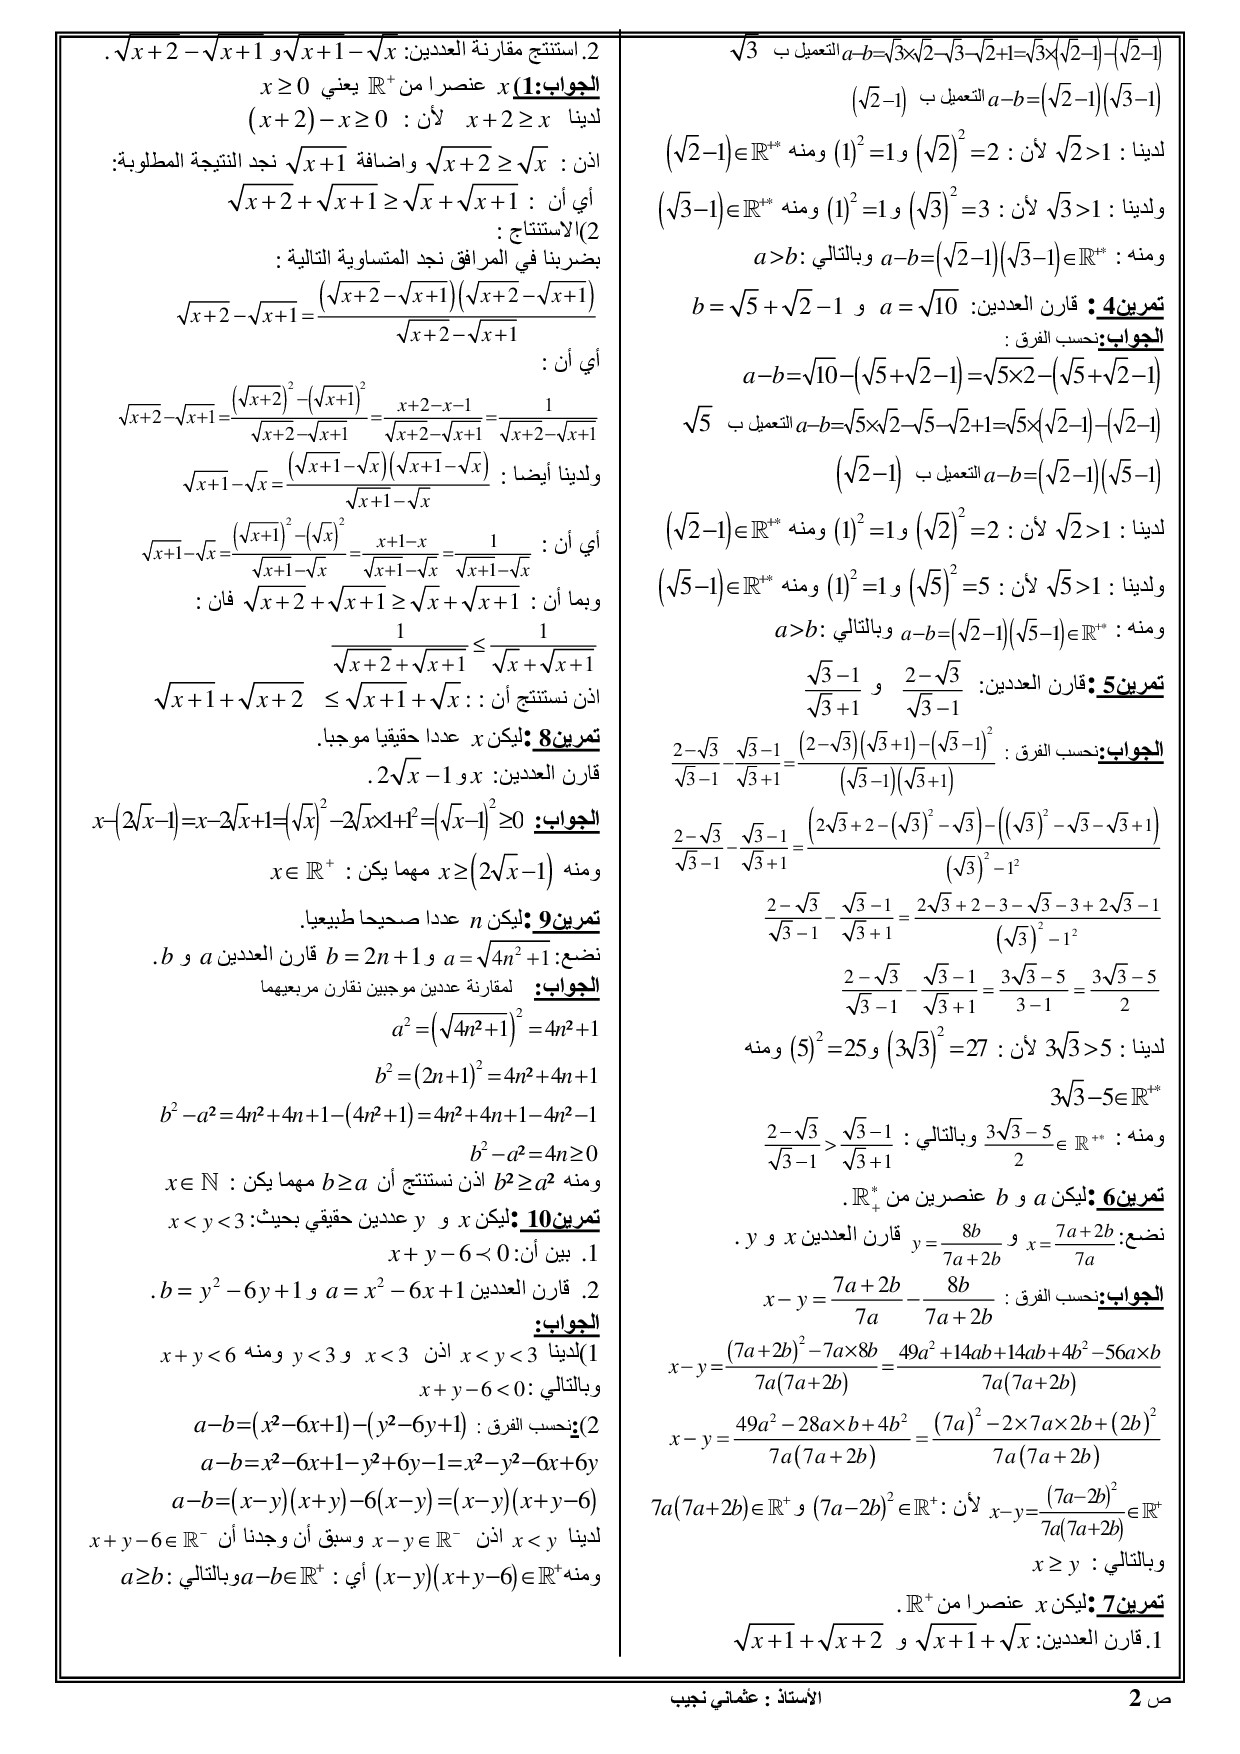 a−b=√3×√2−√3−√2+1=√3×(√2−1)−(√2−1) التعميل ب √3
a−b=(√2−1)(√3−1) التعميل ب (√2−1)
لدينا : √2>1 لأن : (√2)²=2 و (1)²=1 ومنه (√2−1)∈ℝ⁺*
ولدينا : √3>1 لأن : (√3)²=3 و (1)²=1 ومنه (√3−1)∈ℝ⁺*
ومنه : a−b=(√2−1)(√3−1)∈ℝ⁺* وبالتالي : a>b
تمرين4 : قارن العددين: a=√10 و b=√5+√2−1
الجواب:نحسب الفرق :
a−b=√10−(√5+√2−1)=√5×2−(√5+√2−1)
a−b=√5×√2−√5−√2+1=√5×(√2−1)−(√2−1) التعميل ب √5
a−b=(√2−1)(√5−1) التعميل ب (√2−1)
لدينا : √2>1 لأن : (√2)²=2 و (1)²=1 ومنه (√2−1)∈ℝ⁺*
ولدينا : √5>1 لأن : (√5)²=5 و (1)²=1 ومنه (√5−1)∈ℝ⁺*
ومنه : a−b=(√2−1)(√5−1)∈ℝ⁺* وبالتالي : a>b
تمرين5 :قارن العددين: (2−√3)/(√3−1) و (√3−1)/(√3+1)
الجواب:نحسب الفرق : (2−√3)/(√3−1) − (√3−1)/(√3+1) = ((2−√3)(√3+1)−(√3−1)²)/((√3−1)(√3+1))
(2−√3)/(√3−1) − (√3−1)/(√3+1) = ((2√3+2−(√3)²−√3)−((√3)²−√3−√3+1))/((√3)²−1²)
(2−√3)/(√3−1) − (√3−1)/(√3+1) = (2√3+2−3−√3−3+2√3−1)/((√3)²−1²)
(2−√3)/(√3−1) − (√3−1)/(√3+1) = (3√3−5)/(3−1) = (3√3−5)/2
لدينا : 3√3>5 لأن : (3√3)²=27 و (5)²=25 ومنه
3√3−5∈ℝ⁺*
ومنه : (3√3−5)/2 ∈ ℝ⁺* وبالتالي : (2−√3)/(√3−1) > (√3−1)/(√3+1)
تمرين6 :ليكن a و b عنصرين من ℝ₊* .
نضع: x=(7a+2b)/7a و y=8b/(7a+2b) قارن العددين x و y .
الجواب:نحسب الفرق : x−y=(7a+2b)/7a − 8b/(7a+2b)
x−y=((7a+2b)²−7a×8b)/(7a(7a+2b))=(49a²+14ab+14ab+4b²−56a×b)/(7a(7a+2b))
x−y=(49a²−28a×b+4b²)/(7a(7a+2b))=((7a)²−2×7a×2b+(2b)²)/(7a(7a+2b))
x−y=(7a−2b)²/(7a(7a+2b))∈ℝ⁺ لأن : (7a−2b)²∈ℝ⁺ و 7a(7a+2b)∈ℝ⁺
وبالتالي : x ≥ y
تمرين7 :ليكن x عنصرا من ℝ⁺ .
1. قارن العددين: √(x+1)+√x و √(x+1)+√(x+2)
2. استنتج مقارنة العددين: √(x+1)−√x و √(x+2)−√(x+1) .
الجواب:1) x عنصرا من ℝ⁺ يعني x ≥ 0
لدينا x+2 ≥ x لأن : (x+2)−x ≥ 0
اذن : √(x+2) ≥ √x واضافة √(x+1) نجد النتيجة المطلوبة:
أي أن : √(x+2)+√(x+1) ≥ √x+√(x+1)
2)الاستنتاج :
بضربنا في المرافق نجد المتساوية التالية :
√(x+2)−√(x+1)=((√(x+2)−√(x+1))(√(x+2)−√(x+1)))/(√(x+2)−√(x+1))
أي أن :
√(x+2)−√(x+1)=((√(x+2))²−(√(x+1))²)/(√(x+2)−√(x+1))=(x+2−x−1)/(√(x+2)−√(x+1))=1/(√(x+2)−√(x+1))
ولدينا أيضا : √(x+1)−√x=((√(x+1)−√x)(√(x+1)−√x))/(√(x+1)−√x)
أي أن : √(x+1)−√x=((√(x+1))²−(√x)²)/(√(x+1)−√x)=(x+1−x)/(√(x+1)−√x)=1/(√(x+1)−√x)
وبما أن : √(x+2)+√(x+1) ≥ √x+√(x+1) فان :
1/(√(x+2)+√(x+1)) ≤ 1/(√x+√(x+1))
اذن نستنتج أن : : √(x+1)+√(x+2) ≤ √(x+1)+√x
تمرين8 :ليكن x عددا حقيقيا موجبا.
قارن العددين: x و 2√x−1 .
الجواب: x−(2√x−1)=x−2√x+1=(√x)²−2√x×1+1²=(√x−1)²≥0
ومنه x≥(2√x−1) مهما يكن : x∈ℝ⁺
تمرين9 :ليكن n عددا صحيحا طبيعيا.
نضع: a=√(4n²+1) و b=2n+1 قارن العددين a و b.
الجواب: لمقارنة عددين موجبين نقارن مربعيهما
a²=(√(4n²+1))²=4n²+1
b²=(2n+1)²=4n²+4n+1
b²−a²=4n²+4n+1−(4n²+1)=4n²+4n+1−4n²−1
b²−a²=4n≥0
ومنه b²≥a² اذن نستنتج أن b≥a مهما يكن : x∈ℕ
تمرين10 :ليكن x و y عددين حقيقي بحيث: x<y<3
1. بين أن: x+y−6≺0
2. قارن العددين a=x²−6x+1 و b=y²−6y+1 .
الجواب:
1)لدينا x<y<3 اذن x<3 و y<3 ومنه x+y<6
وبالتالي : x+y−6<0
2):نحسب الفرق : a−b=(x²−6x+1)−(y²−6y+1)
a−b=x²−6x+1−y²+6y−1=x²−y²−6x+6y
a−b=(x−y)(x+y)−6(x−y)=(x−y)(x+y−6)
لدينا x<y اذن x−y∈ℝ⁻ وسبق أن وجدنا أن x+y−6∈ℝ⁻
ومنه (x−y)(x+y−6)∈ℝ⁺ أي : a−b∈ℝ⁺ وبالتالي : a≥b
ص 2
الأستاذ : عثماني نجيب